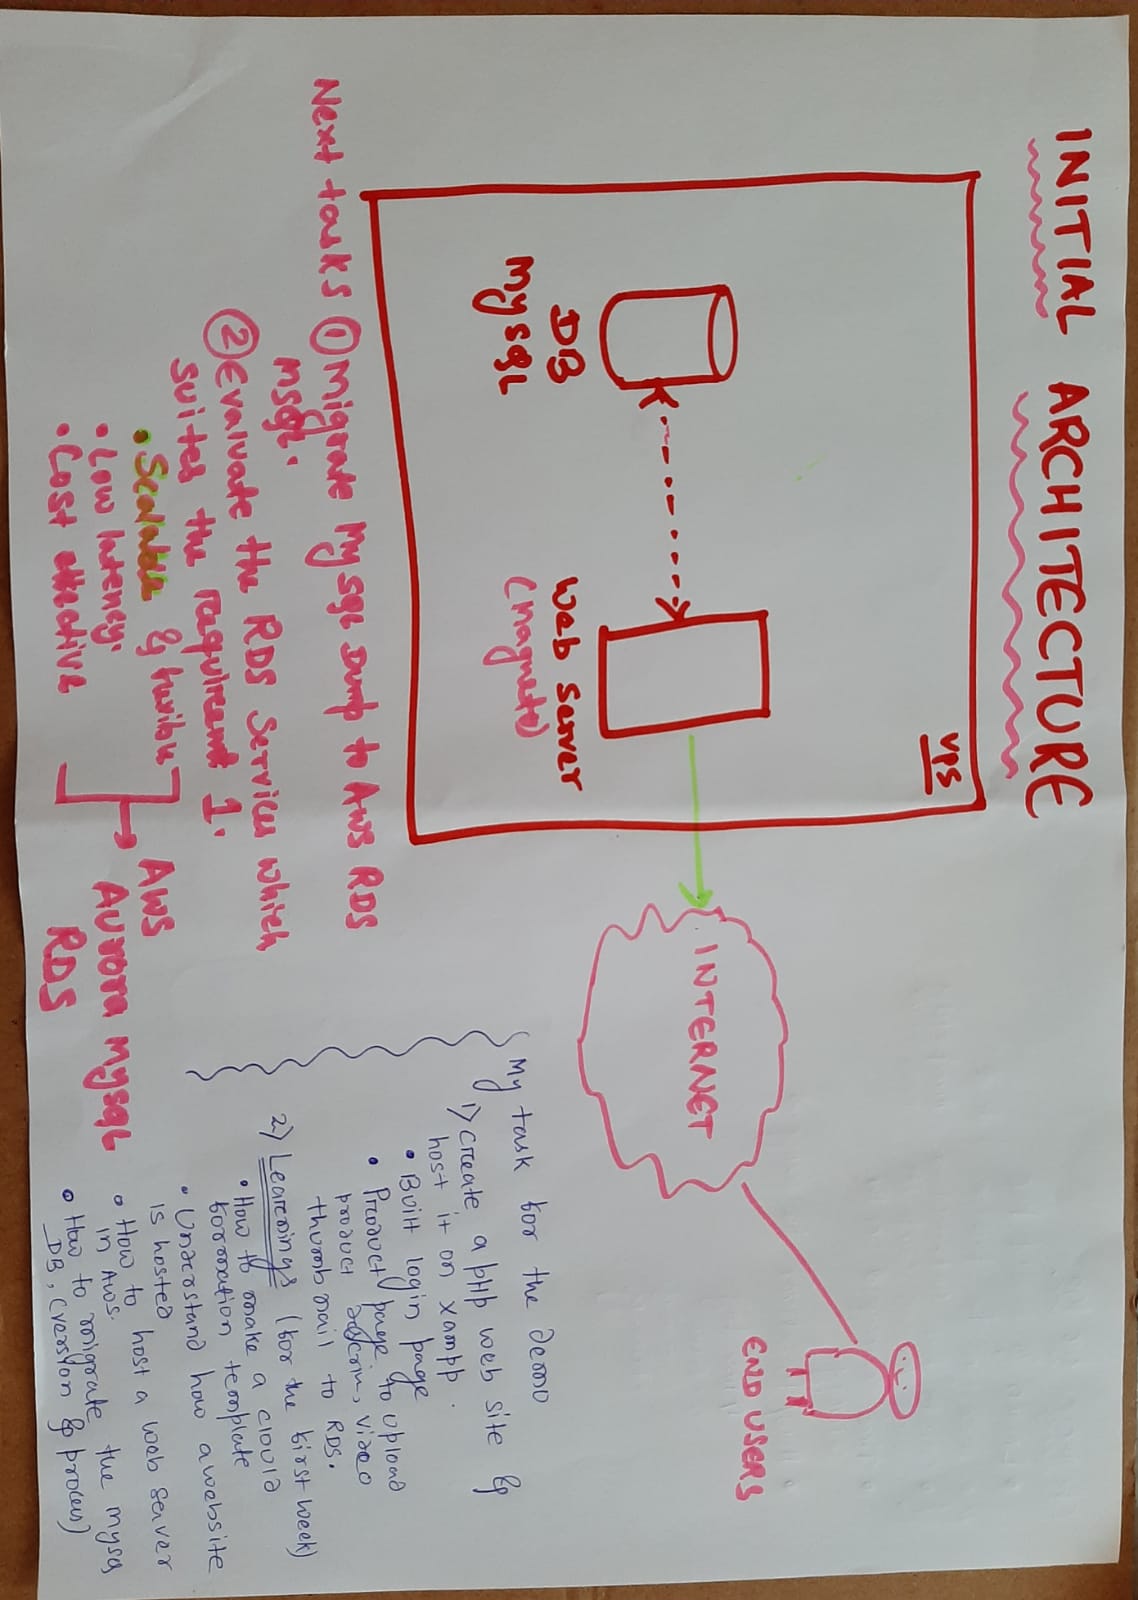 INITIAL ARCHITECTURE
VPS
DB
Mysql
Web Server
(Magneto)
INTERNET
END USERS
Next tasks ① Migrate Mysql Dump to AWS RDS
Msql.
② Evaluate the RDS Services which
suites the requirement 1.
• Scalable &
• Low latency.
• Cost effective
AWS
Aurora Mysql
RDS
My task for the demo
1) Create a php web site &
host it on xampp.
• Built login page
• Product page to upload
product, video
thumbnail to RDS.
2) Learnings (for the first week)
• How to make a cloud
formation template
• Understand how a website
is hosted
• How to host a web server
in AWS.
• How to migrate the mysql
DB, (version & process)